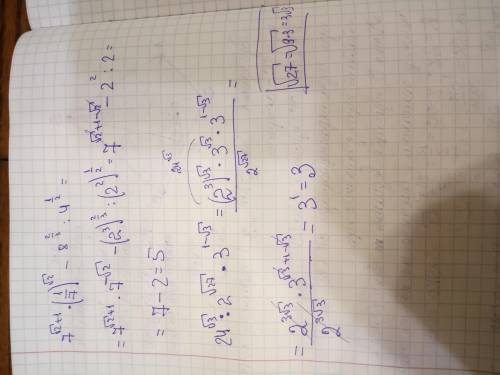 7^{√2+1} · (1/7)^{√2} − 8^{2/3} : 4^{1/2} =
= 7^{√2+1} · 7^{-√2} − (2^3)^{2/3} : (2^2)^{1/2} = 7^{√2+1−√2} − 2^2 : 2 =
= 7 − 2 = 5
24^{√3}
24^{√3} : 2^{√27} · 3^{1−√3} = (2^3)^{√3} · 3^{√3} · 3^{1−√3} / 2^{√27} =
= 2^{3√3} · 3^{√3+1−√3} / 2^{3√3} = 3^1 = 3
√27 = √9·3 = 3√3